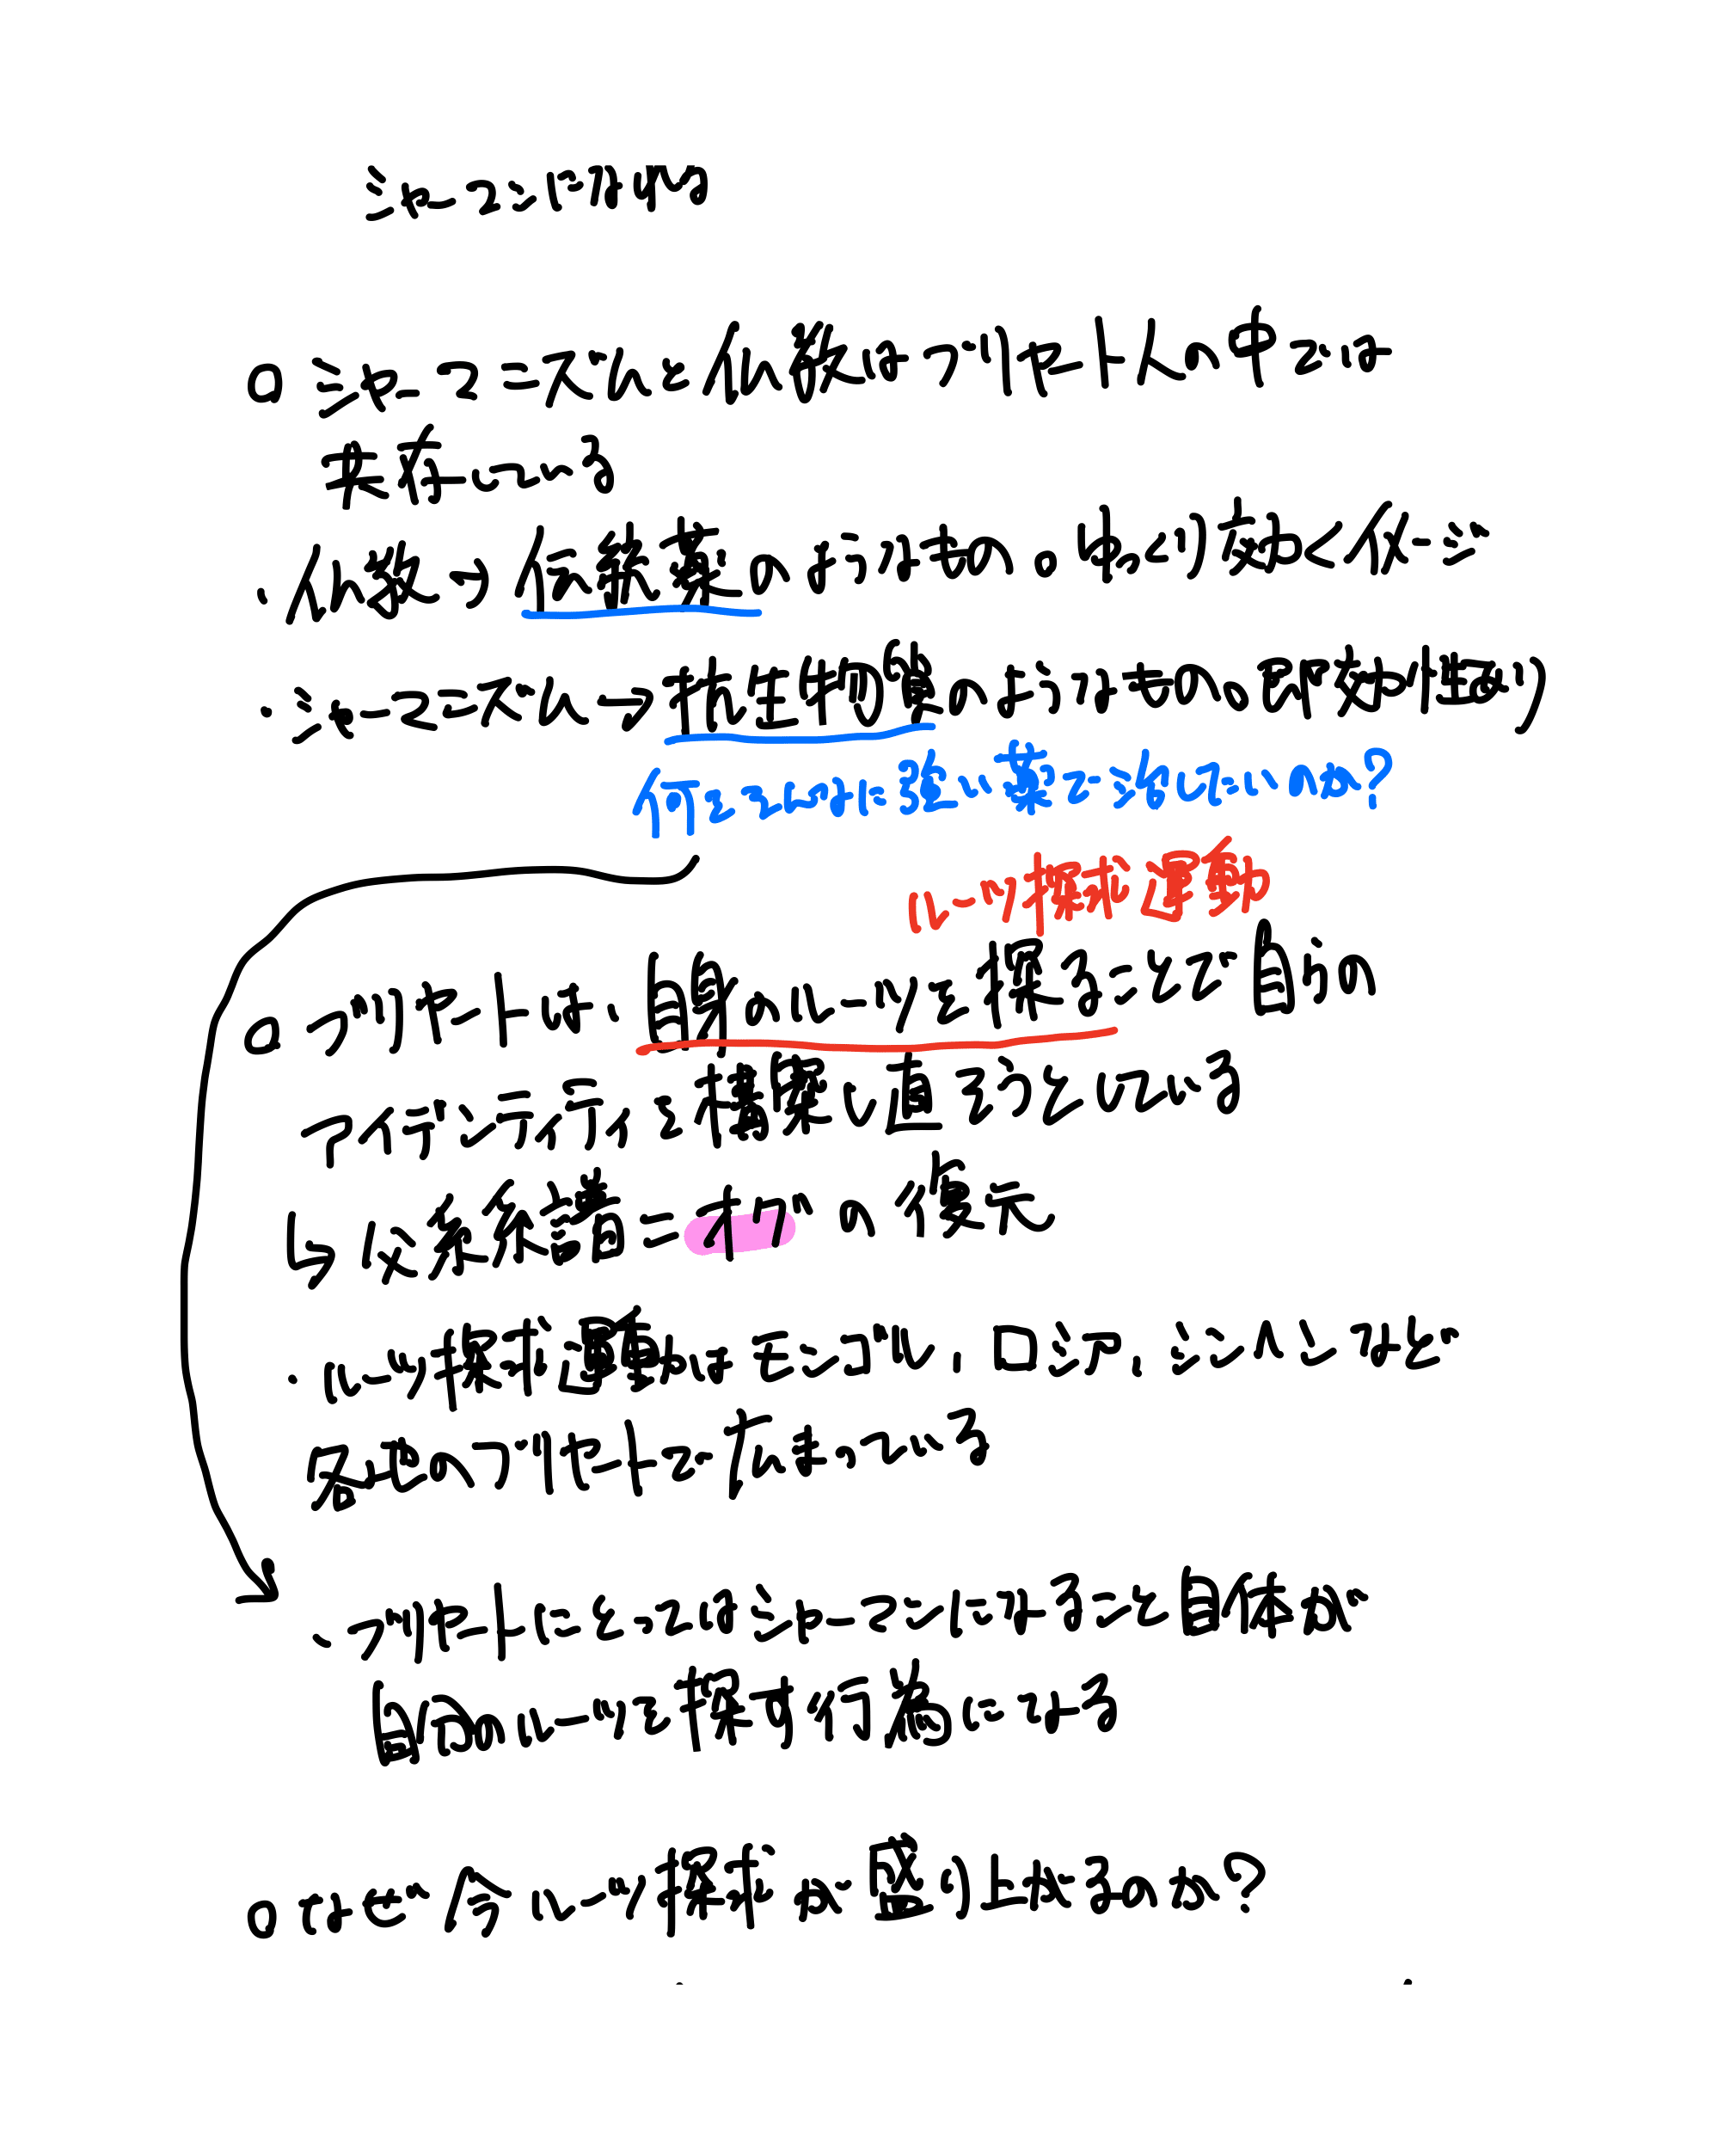 シャーマンになれる
○シャーマニズムと仏教はブリヤート人の中では
共存している
・仏教→伝統薬のようなもの。ゆっくり効くイメージ
・シャーマニズム→抗生物質のようなもの。即効性あり
何をこんなに強い薬で治したいのか?
ルーツ探求運動
○ブリヤートは、自身のルーツを探ることで自分の
アイデンティティを構築し直そうとしている
↳父系系譜=オグの復元
・ルーツ探求運動はモンゴル、ロシア、シンヘンなど
各地のブリヤートで広まっている
・ブリヤートにとってはシャーマンになること自体が
自分のルーツを探す行為になる
○なぜ今ルーツ探求が盛り上がるのか?